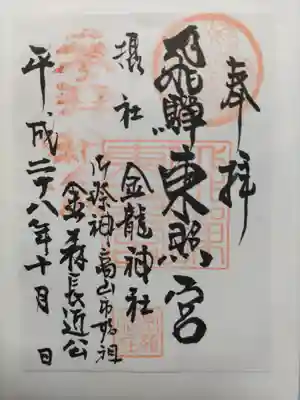 奉拝
飛騨東照宮
摂社
金龍神社
御祭神
高山市の祖
金森長近公
平成二十八年十月 日